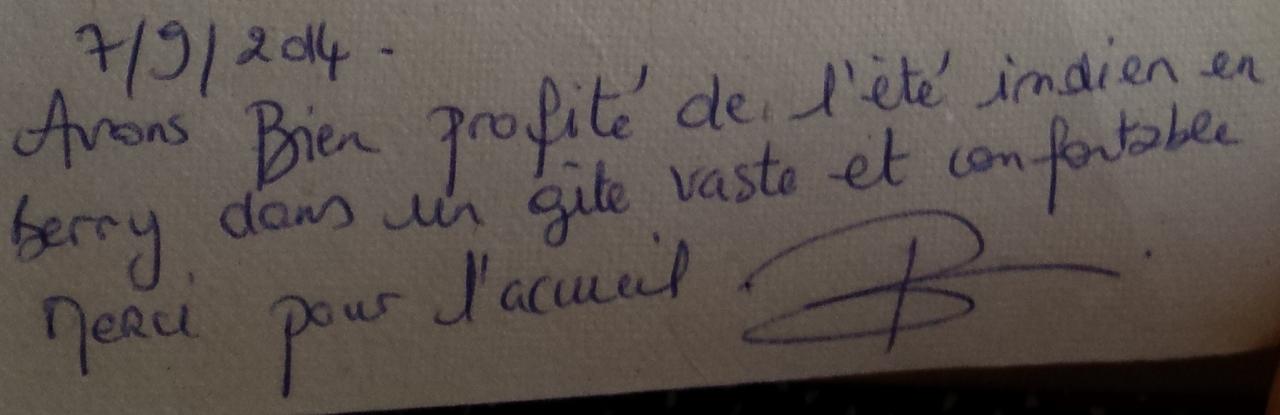 7/9/2014.
Avons Bien profité de l'été indien en
berry dans un gîte vaste et confortable
Merci pour l'accueil